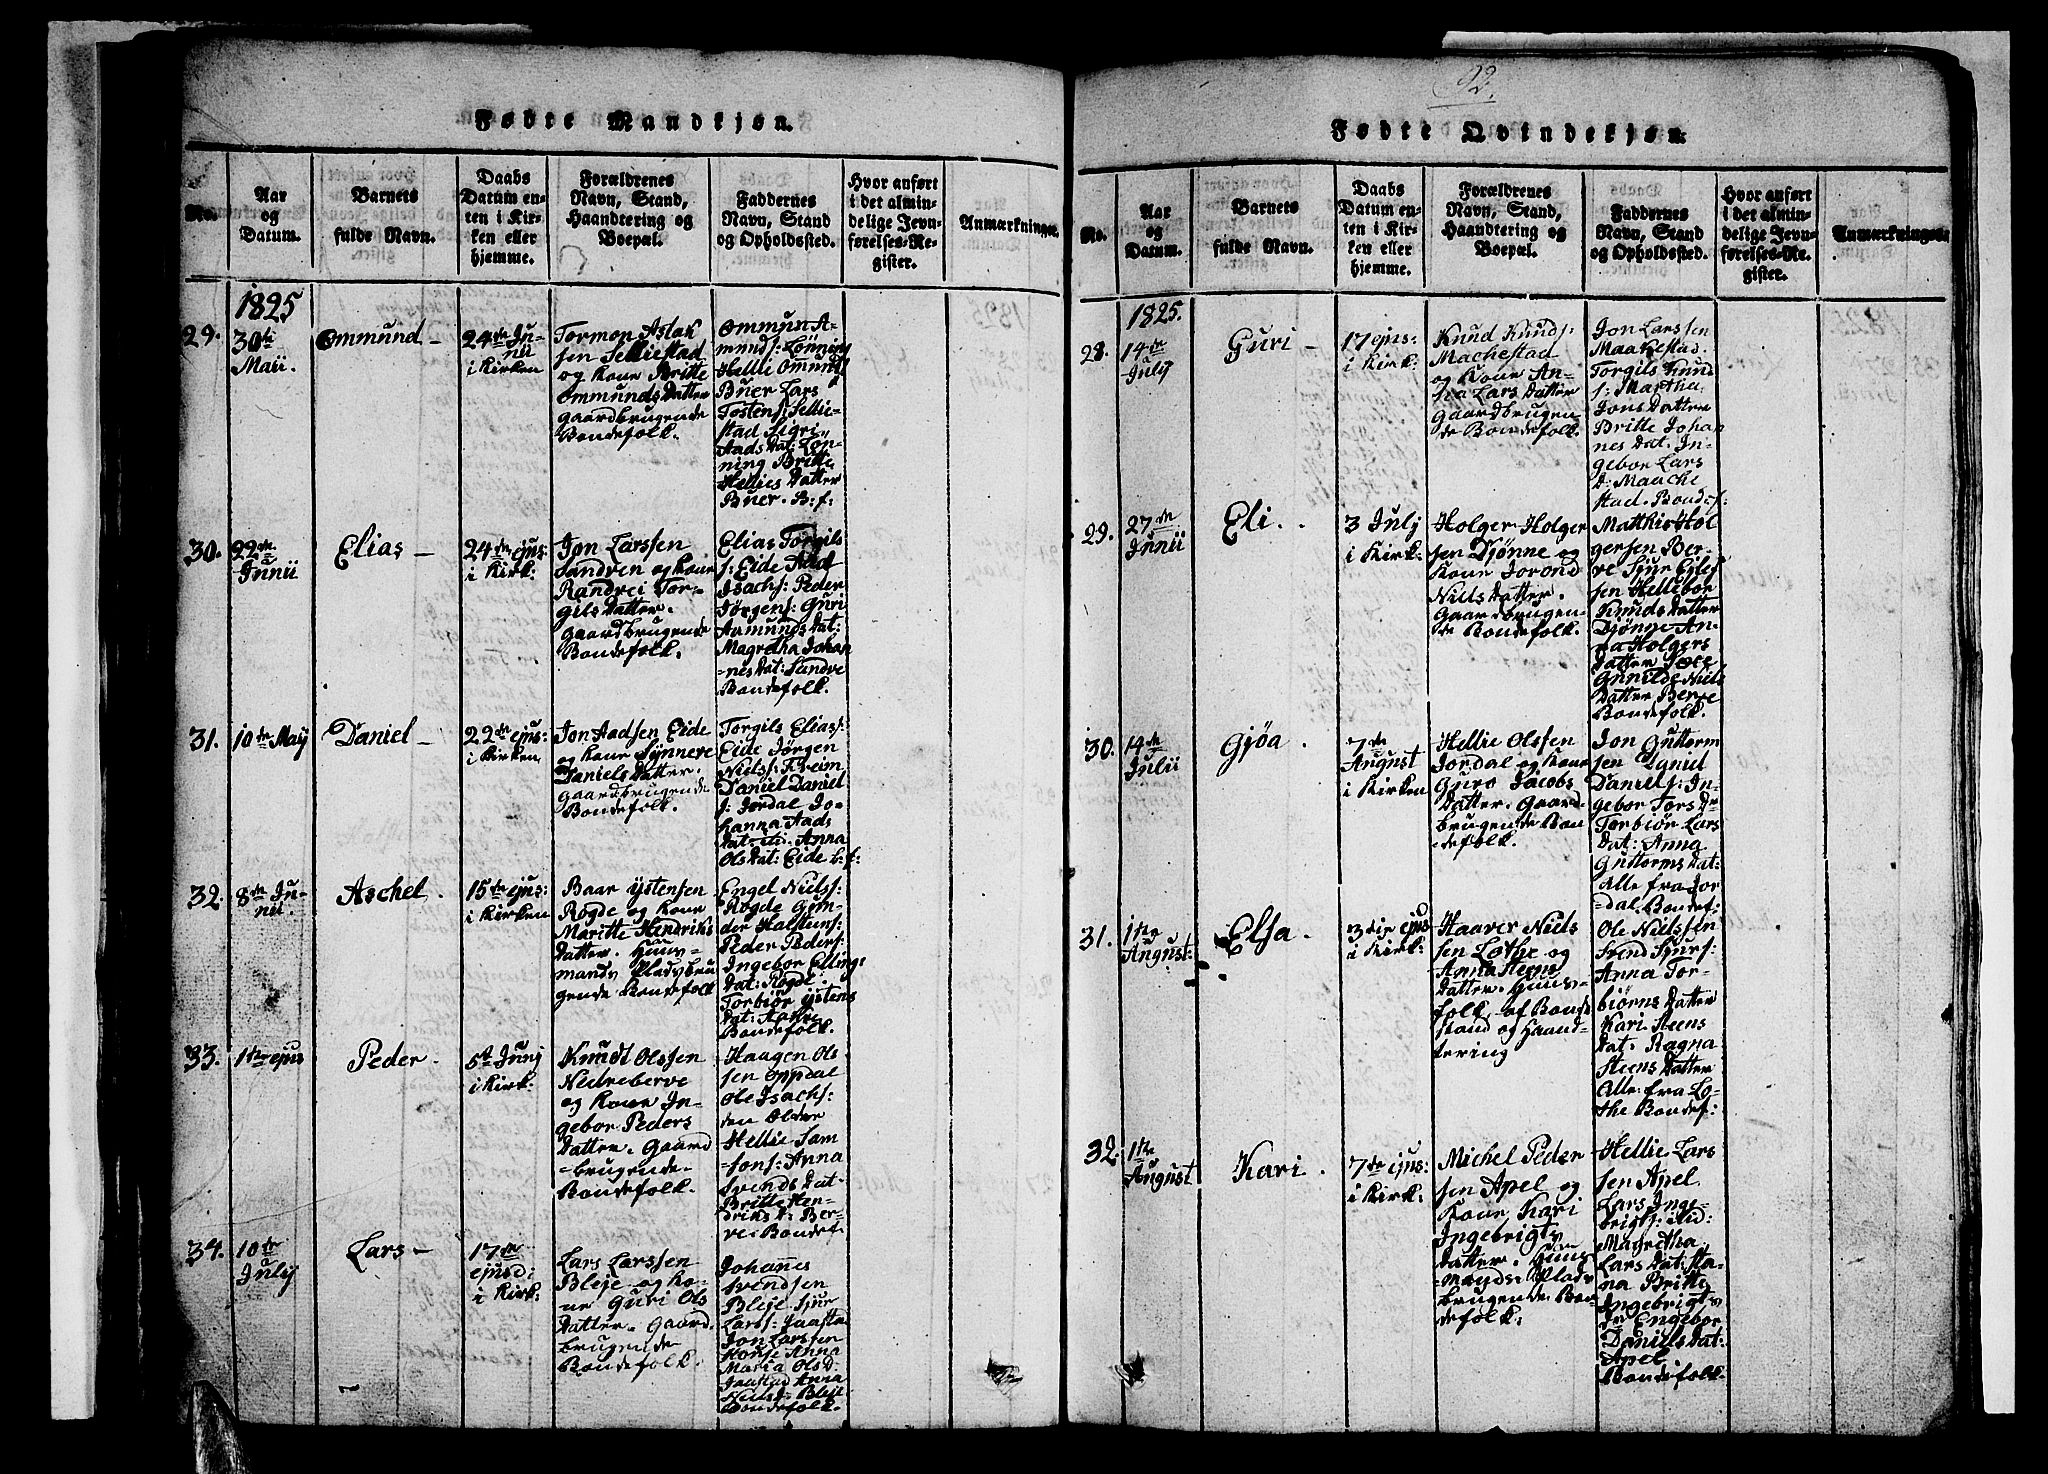 92.
Fødte Mandkjøn.
No.
Aar
og
Datum.
Barnets
fulde Navn.
Daabs
Datum en-
ten i Kir-
ken eller
hjemme.
Forældrenes
Navn, Stand,
Haandtering og
Boepæl.
Faddernes
Navn, Stand
og Opholdssted.
Hvor anført
i det almin-
delige Jevn-
førelses-Re-
gister.
Anmærkninger.
1825
29.
30te
Maii.
Ommund
24de Ju-
nii
i Kirken
Tormon Aslak
sen Selliestad
og Kone Britte
Ommunds Datter
gaardbrugende
Bondefolk.
Ommun A-
munds: Lønning
Hellie Ommuns
Buer Lars
Tostens: Sellie-
stad Sigri
Aads Dat: Løn-
ning Britte
Hellies Datter
Buer. B: f:
30.
22de
Junii
Elias
24de ejus:
i Kirk:
Jon Larssen
Sandven og Kone
Randvei Tor-
gils Datter.
Gaardbrugende
Bondefolk.
Elias Torgils
s: Eide Aad
Isachs: Peder
Jørgens: Guri
Aamunds Dat:
Magretha Johan
-nes Dat: Sandve
Bondefolk.
31.
10de Maij
Daniel
22de ejus:
i Kirken
Jon Aadsen Eide
og Kone Synneve
Daniels Datter.
Gaardbrugende
Bondefolk.
Torgils Elias s:
Eide Jørgen
Niels s: Freim
Daniel Daniel
s: Jordal Jo-
hanna Aads
Dat: ti. Anna
Ols Dat: Eide b: f:
32.
8de Ju-
nii.
Aschel.
15de ejus:
i Kirken
Baar Ystensen
Rogde og Kone
Maritte Hendriks
Datter. Huus
mands Pladsbru
gende Bondefolk
Engel Niels s:
Rogde Gun-
der Halsteins:
Peder Peders:
Ingebor Ellings
Dat: Rogde
Torbiør Ystens
Dat: Aache
Bondefolk.
33.
1te ejus
Peder
5te Junj
i Kirk:
Knudt Olssen
Nedreberve
og Kone In-
gebor Peders
Datter. Gaard
-brugende
Bondefolk.
Haagen Ols
sen Oppdal
Ole Isachs:
Hellie Sam
-sons: Anna
Svends Dat-
Britte Hen-
driks d: Ber-
ve. Bondef:
34.
10de
Julij
Lars
17de
ejusd:
i Kirk:
Lars Larssen
Bleje og Ko-
ne Guri Ols
Datter. Gaard
brugende
Bondefolk.
Johannes
Svendsen
Bleje Sjur
Lars s: Jaastad
Jon Larssen
Anna
Maria Ols d:
Jaastad Anna
Niels d: Bleje
Bondefolk.
Fødte Qvindekjøn.
No.
Aar
og
Datum.
Barnets
fulde Navn.
Daabs
Datum en-
ten i Kir-
ken eller
hjemme.
Forældrenes
Navn, Stand,
Haandtering og
Boepæl.
Faddernes
Navn, Stand
og Opholdssted.
Hvor anført
i det almin-
delige Jevn-
førelses-Re-
gister.
Anmærkninger.
1825.
28.
14de
July
Guri
17 ejus
i Kirk:
Knud Knuds:
Machestad
og Kone An-
na Lars Datter
Gaardbrugen-
de Bondefolk.
Jon Larssen
Maakestad.
Torgils Knud
s: Martha
Jons Datter
Britte Johan
nes Dat: In-
gebor Lars
D: Maache
stad. Bondef:
29.
27de
Junii
Eli.
3 Julj
i Kirk:
Holger Holger
sen Djønne og
Kone Jorond
Niels Datter.
Gaardbrugen-
de Bondefolk.
Matthis Hol
gersen Ber-
ve Sjur Eilef
sen Hellebor
Knuds Datter
Djønne An-
na Holgers
Datter
Gunilde Niels
Datter Berve
Bondefolk.
30.
14de
Julii
Gjøa.
7de
August
i Kirken
Hellie Olssen
Jordal og Kone
Guro Jacobs
Datter. Gaard-
brugende Bon
-defolk.
Jon Guttorm
sen Daniel
Daniels s: In-
gebor Tors Dr
Torbiør Lars
Dat: Anna
Guttorms Dat:
Alle fra Jor
-dal. Bondef:
31.
1te
August:
Elsa.
3die ejus
i Kirk:
Haaver Niels
sen Lothe og
Anna Steens
Datter. Huus-
folk af Bonde
stand og Haand-
tering
Ole Nielssen
Svend Sjurs:
Anna Tor-
biørns Datter
Kari Steens
Dat: Ragna
Steens Datter
Alle fra Lo-
the Bondef:
32.
1te
August
Kari.
7de ejus:
i Kirk:
Michel Peder
sen Apel og
Kone Kari
Ingebrigts
Datter. Huus
-mands Plads
brugende Bon
defolk.
Hellie Lars
sen Apel
Lars Inge-
brigts:
Magretha
Lars Dat:
Britte
Ingebrigts
Dr Engebor
Daniels Dat:
Apel
Bondefolk.